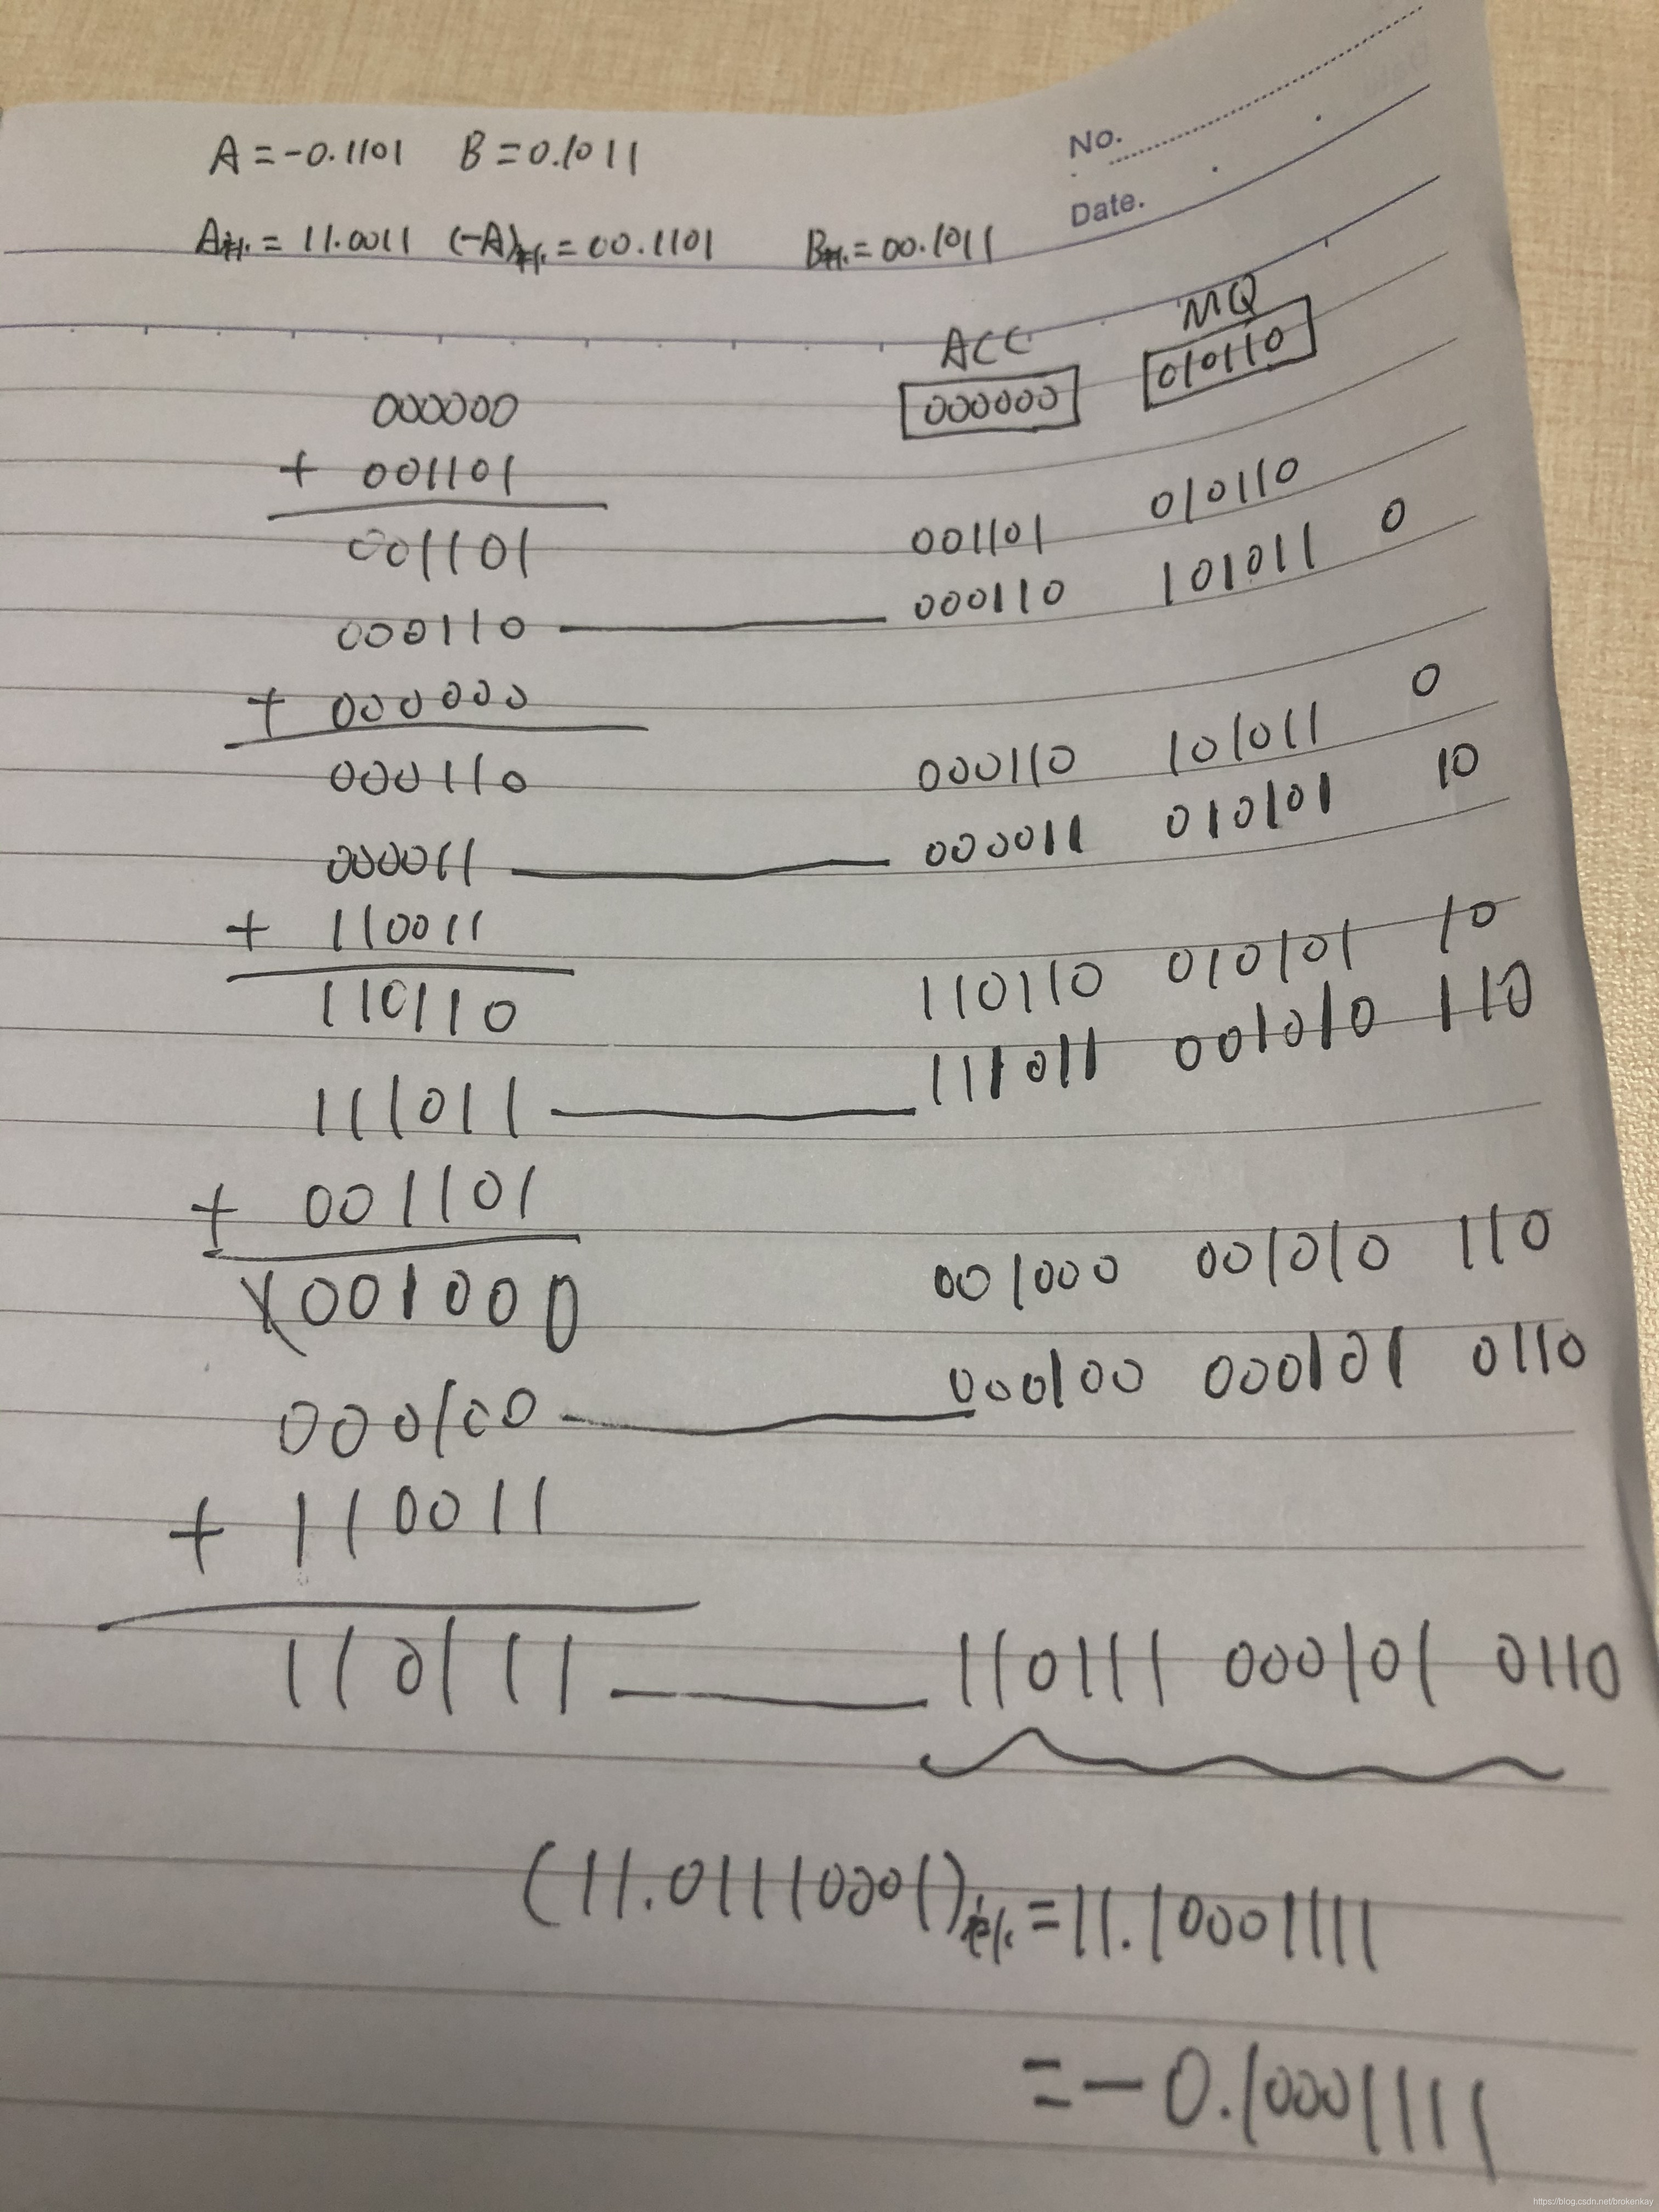 No.
Date.
A=-0.1101 B=0.1011
A补=11.0011 (-A)补=00.1101 B补=00.1011
ACC MQ
000000 000000 010110
+ 001101
001101 001101 010110
000110 000110 101011 0
+ 000000
000110 000110 101011 0
000011 000011 010101 10
+ 110011
110110 110110 010101 10
111011 111011 001010 110
+ 001101
1001000 001000 001010 110
000100 000100 000101 0110
+ 110011
110111 110111 000101 0110
(11.01110001)补=11.10001111
=-0.10001111
https://blog.csdn.net/brokenkay